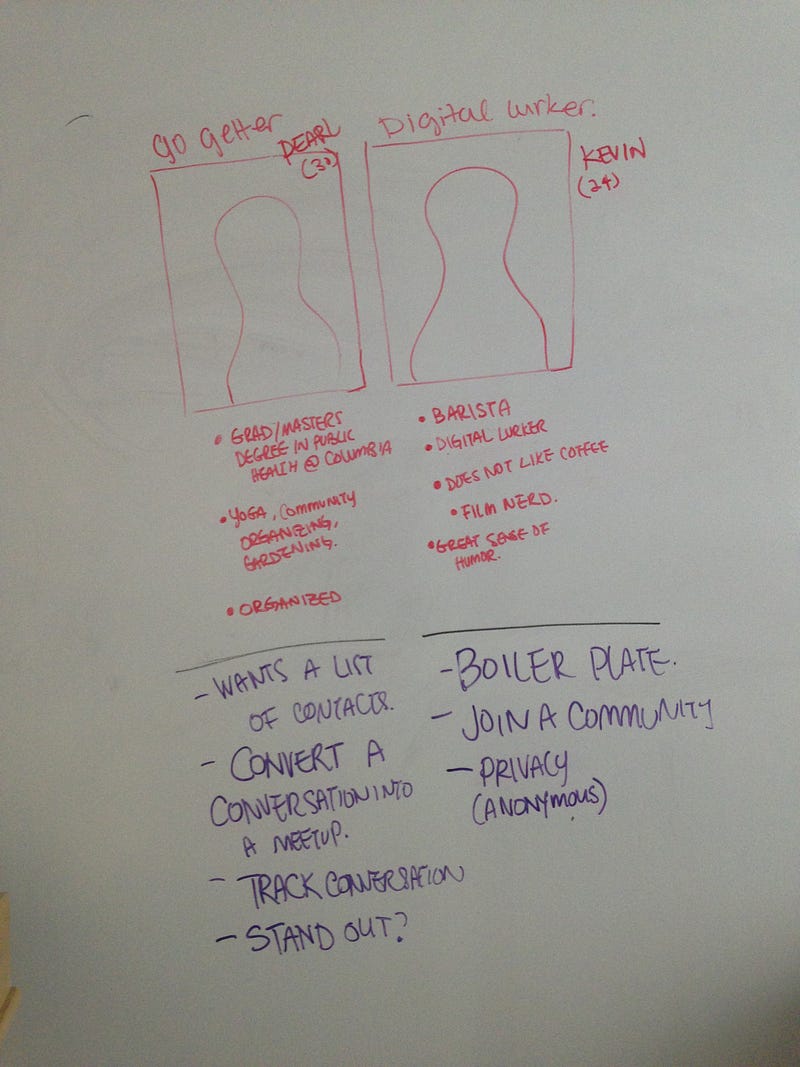 go getter
PEARL
(30)
• GRAD/MASTERS
DEGREE IN PUBLIC
HEALTH @ COLUMBIA
• YOGA, COMMUNITY
ORGANIZING,
GARDENING.
• ORGANIZED
- WANTS A LIST
OF CONTACTS.
- CONVERT A
CONVERSATION INTO
A MEETUP.
- TRACK CONVERSATION
- STAND OUT?
Digital lurker.
KEVIN
(24)
• BARISTA
• DIGITAL LURKER
• DOES NOT LIKE COFFEE
• FILM NERD.
• GREAT SENSE OF
HUMOR.
- BOILER PLATE.
- JOIN A COMMUNITY
- PRIVACY
(ANONYMOUS)